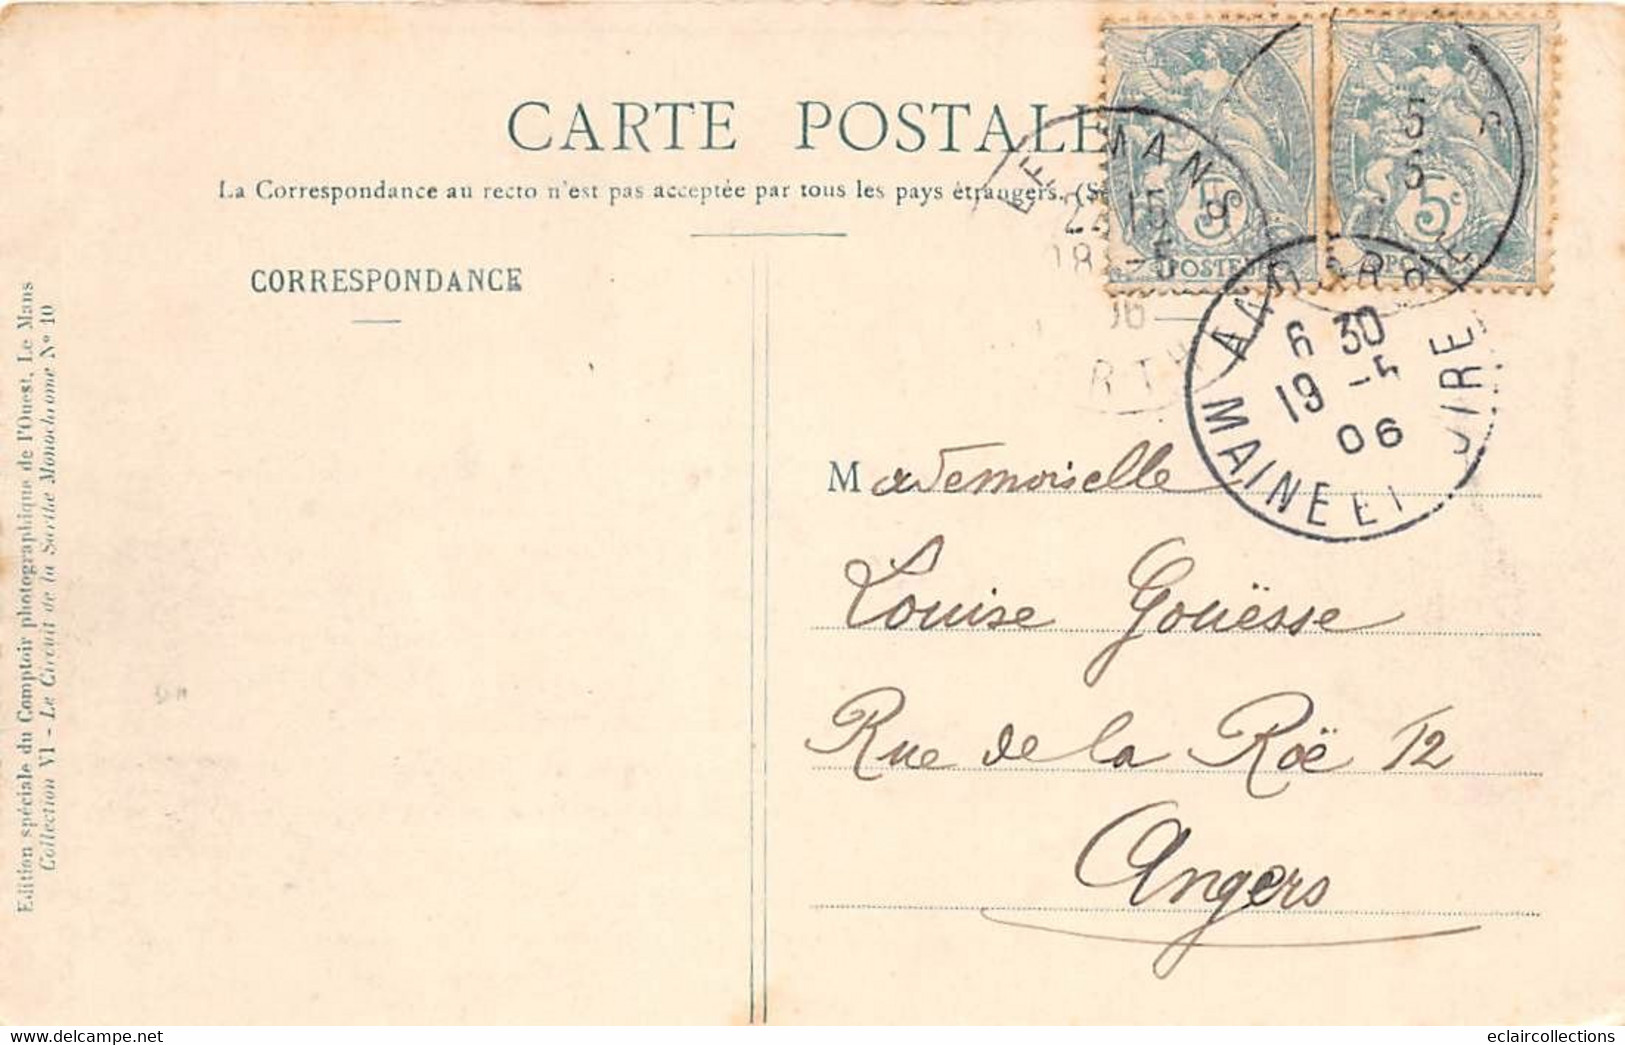 CARTE POSTALE
La Correspondance au recto n'est pas acceptée par tous les pays étrangers. (S
CORRESPONDANCE
LE MANS
5c
5c
POSTES
6 30
19 -5
06
MAINE ET LOIRE
Mademoiselle
Louise Gouësse
Rue de la Roë 12
Angers
Edition spéciale du Comptoir photographique de l'Ouest, Le Mans
Collection VI - Le Circuit de la Sarthe Monochrome N° 10
delcampe.net
eclaircollections